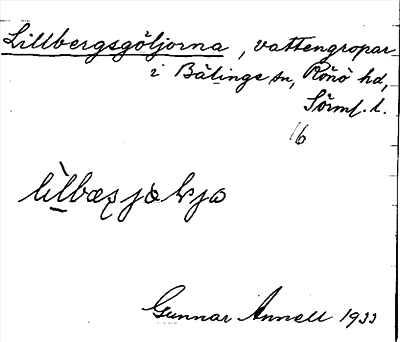 Lillbergsgöljorna, vattengropar
i Bälinge sn, Rönö hd,
Sörml. l.
16
Gunnar Annell 1933